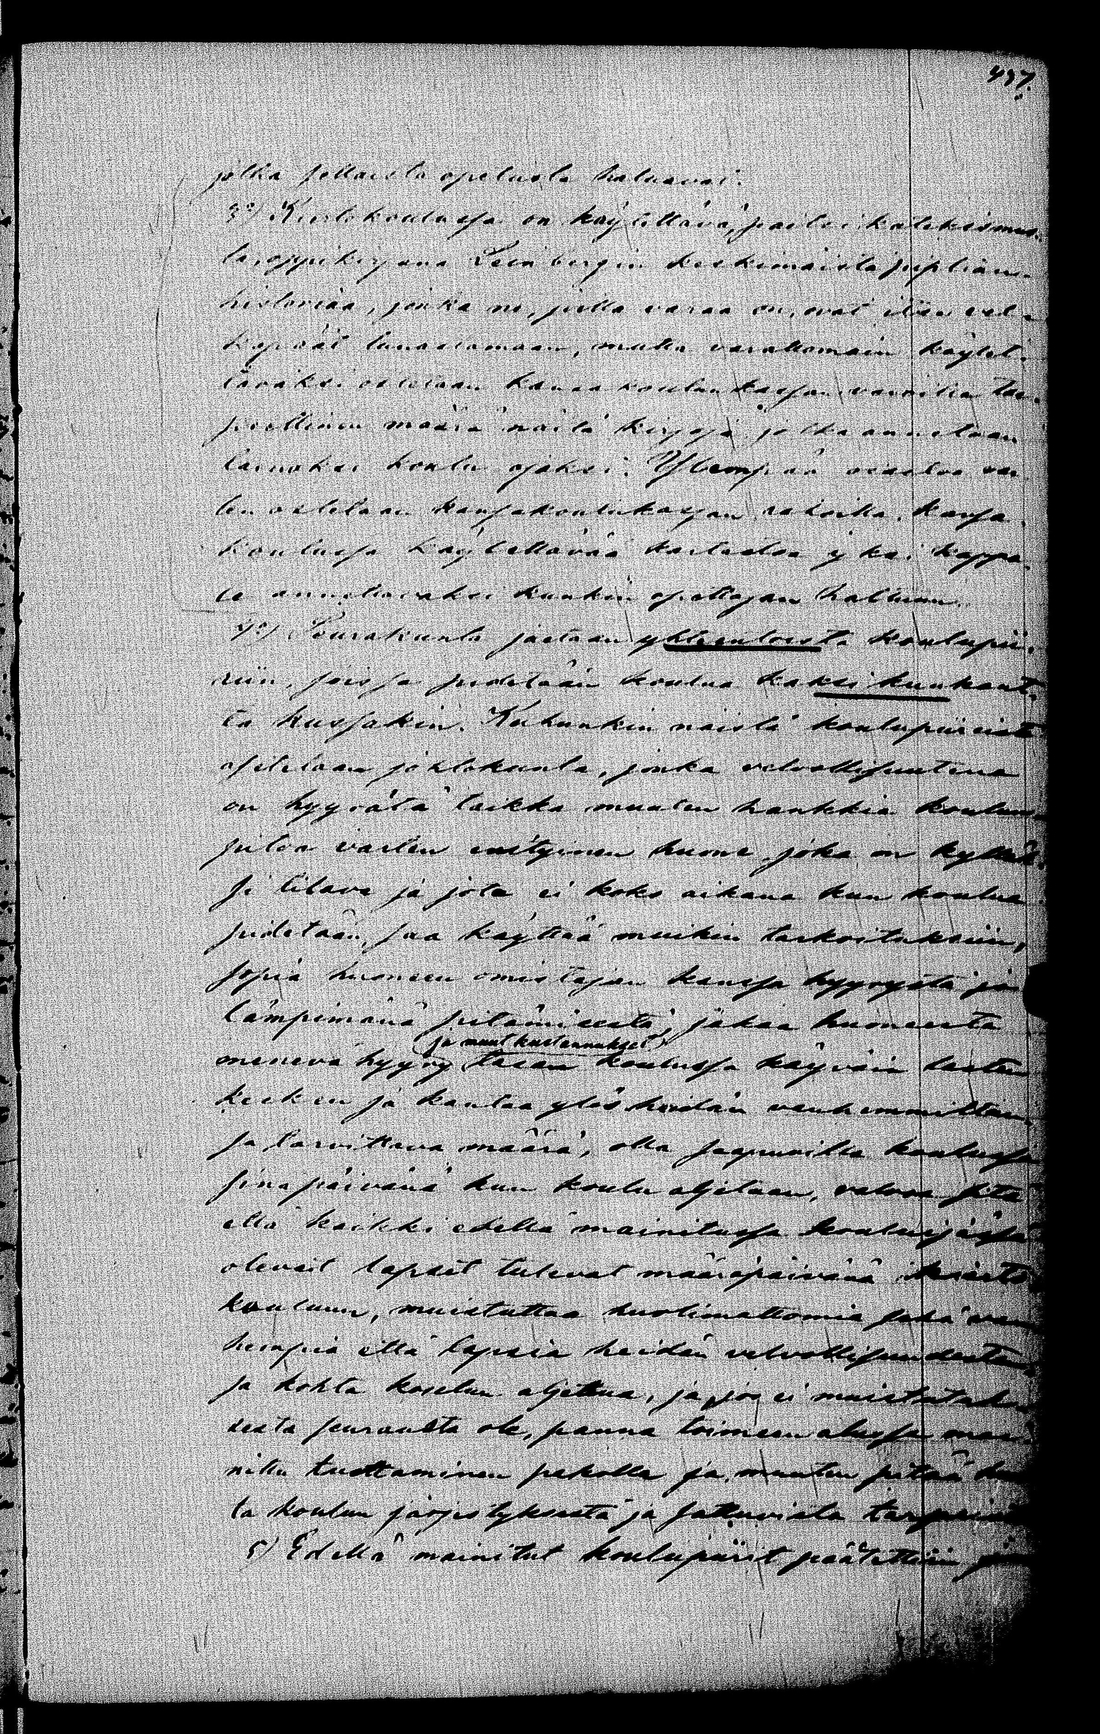 437.
jotka sellaista opetusta haluavat.
3:o) Kiertokoulussa on käytettävä, paitsi katekismus-
ta oppikirjana Steinbergin keskimäistä piplian-
historiaa, jonka ne, joilla varaa on, ovat itse vel-
kapäät lunastamaan, mutta varattomain käytet-
täväksi ostetaan kansakoulun kassan varoilla tar-
peellinen määrä näitä kirjoja jotka annetaan
lainaksi koulu ajaksi. Ylempää osastoa var-
ten ostetaan kansakoulukassan rahoilla kansa-
koulussa käytettävää kartastoa yksi kappa-
le annettavaksi kunkin opettajan haltuun.
4:o) Seurakunta jaetaan yhteentoista koulupii-
riin, joissa pidetään koulua kaksi kuukaut-
ta kussakin. Kuhunkin näistä koulupiireistä
asetetaan johtokunta, jonka velvollisuutena
on hyyrätä taikka muuten hankkia koulun
pitoa varten erityinen huone joka on kylläk-
si tilava ja jota ei koko aikana kun koulua
pidetään, saa käyttää muihin tarkoituksiin,
sopia huoneen omistajan kanssa hyyrystä ja
lämpimänä pitämisestä, jakaa huoneesta
ja muut kustannukset
menevä hyyry tasan koulussa käyväin lasten
kesken ja kantaa ylös heidän vanhemmiltaan
ja tarvittava määrä, olla saapuvilla koulussa
sinä päivänä kun koulu aljetaan, valvoa sitä
että kaikki edellä mainitussa kouluijässä
olevat lapset tulevat määräpäivänä kierto-
kouluun, muistuttaa huolimattomia sekä van-
hempia että lapsia heidän velvollisuudestaan
ja kohta koulun aljettua, ja jos ei muistutuk-
sesta seurausta ole, panna toimeen alussa mai-
nittu tuottaminen pakolla ja muuten pitää huol-
ta koulun järjestyksestä ja sattuvista tarpeista
5) Edellä mainitut koulupiirit päätettiin